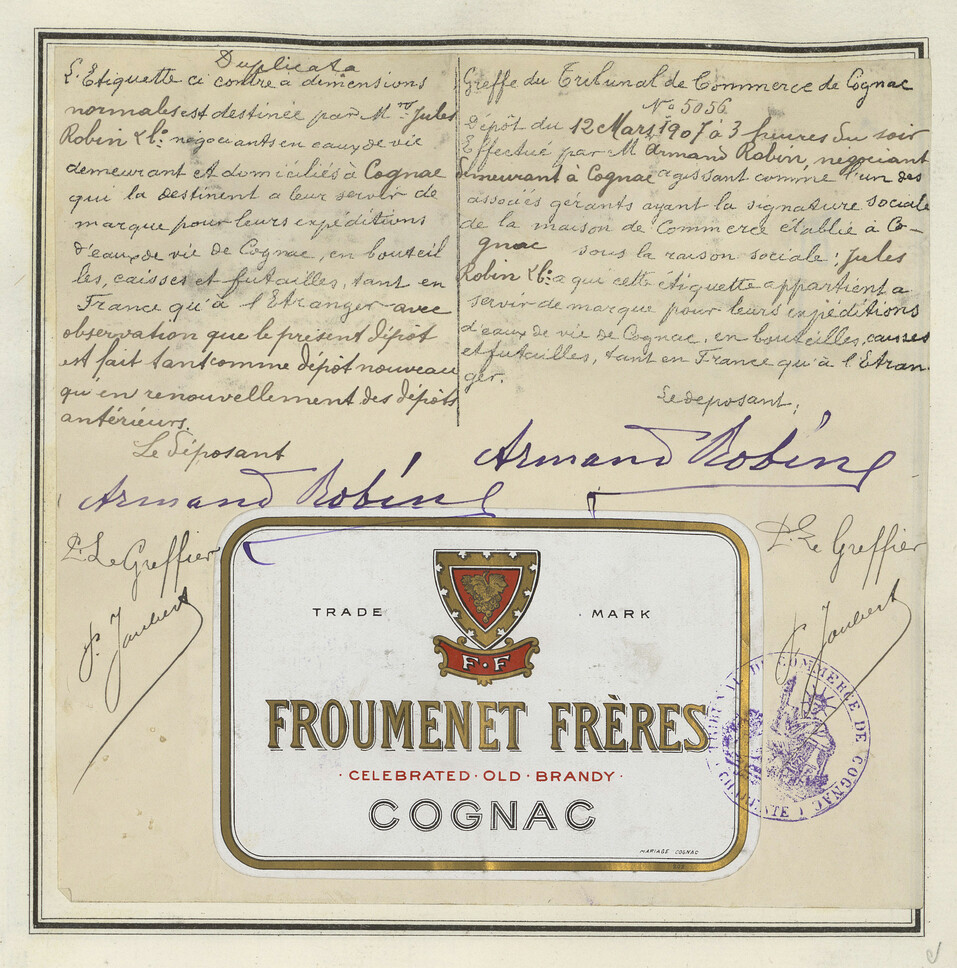 Duplicata
L'Etiquette ci contre à dimensions
normales est destinée par M.rs Jules
Robin & Co. négociants en eaux de vie
demeurant et domiciliés à Cognac
qui la destinent a leur servir de
marque pour leurs expéditions
d'eaux de vie de Cognac, en bouteil
les, caisses et futailles, tant en
France qu'à l'Etranger avec
observation que le présent dépôt
est fait tant comme dépôt nouveau
qu'en renouvellement des dépôts
antérieurs.
Le déposant
Armand Robin
P. Le Greffier
P. Joubert
Greffe du Tribunal de Commerce de Cognac
No 5056
Dépôt du 12 Mars 1907 à 3 heures du soir
Effectué par M Armand Robin, négociant
demeurant à Cognac agissant comme l'un des
associés gérants ayant la signature sociale
de la maison de Commerce établie à Co-
gnac sous la raison sociale: Jules
Robin & Co. a qui cette étiquette appartient a
servir de marque pour leurs expéditions
d'eaux de vie de Cognac, en bouteilles, caisses
et futailles, tant en France qu'à l'Etran-
ger.
Le deposant,
Armand Robin
P. Le Greffier
P. Joubert
TRADE MARK
F·F
FROUMENET FRÈRES
·CELEBRATED·OLD·BRANDY·
COGNAC
MARIAGE COGNAC
TRIBUNAL DE COMMERCE DE COGNAC
(CHARENTE)